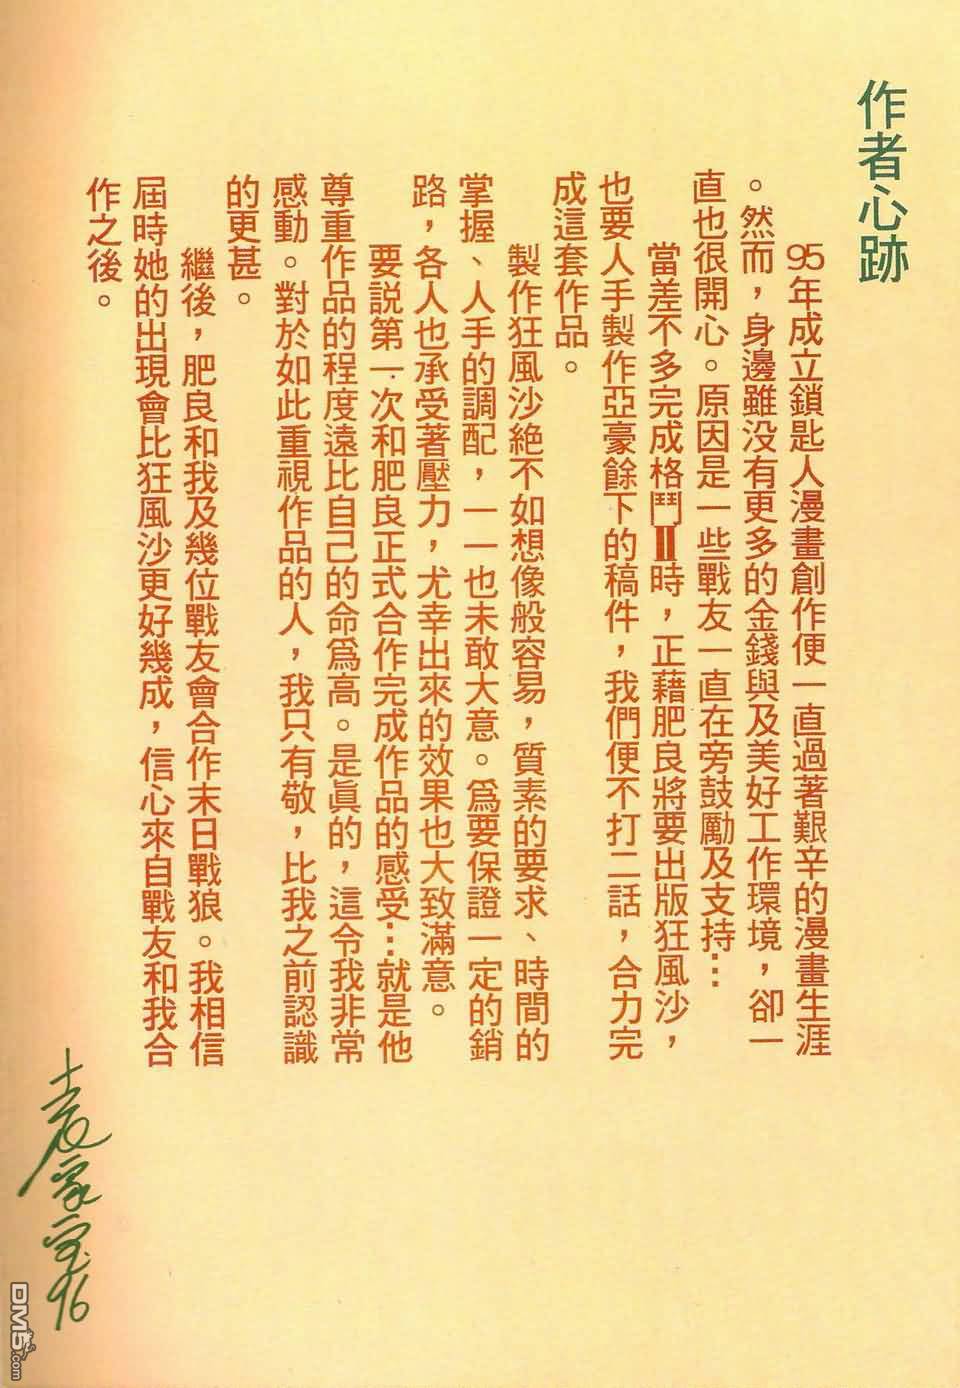 作者心跡
95年成立鎖匙人漫畫創作便一直過著艱辛的漫畫生涯
。然而，身邊雖没有更多的金錢與及美好工作環境，卻一
直也很開心。原因是一些戰友一直在旁鼓勵及支持…
當差不多完成格鬥Ⅱ時，正藉肥良將要出版狂風沙，
也要人手製作亞豪餘下的稿件，我們便不打二話，合力完
成這套作品。
製作狂風沙絶不如想像般容易，質素的要求、時間的
掌握、人手的調配，一一也未敢大意。爲要保證一定的銷
路，各人也承受著壓力，尤幸出來的效果也大致滿意。
要説第一次和肥良正式合作完成作品的感受…就是他
尊重作品的程度遠比自己的命爲高。是眞的，這令我非常
感動。對於如此重視作品的人，我只有敬，比我之前認識
的更甚。
繼後，肥良和我及幾位戰友會合作末日戰狼。我相信
屆時她的出現會比狂風沙更好幾成，信心來自戰友和我合
作之後。
袁家宝
96
DM5.com